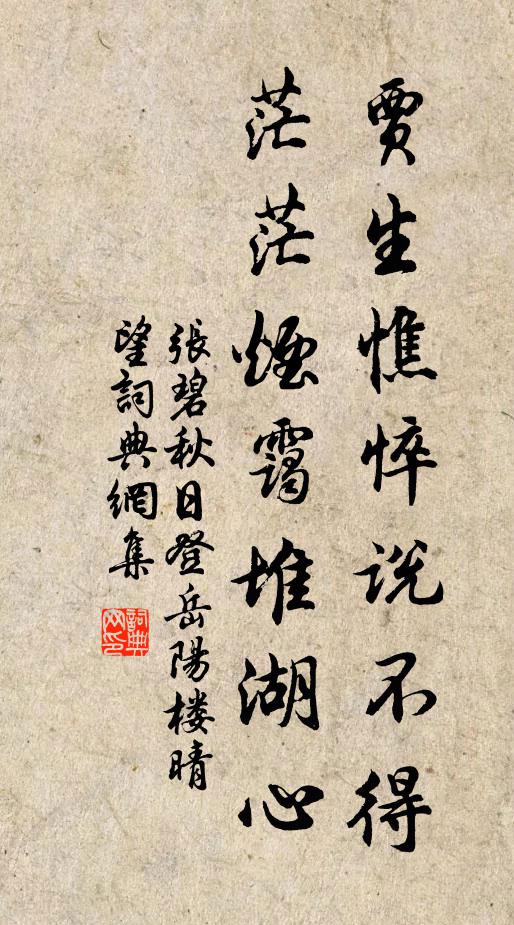 賈生憔悴说不得
茫茫煙靄堆湖心
張碧秋日登岳陽楼晴
望詞典網集
詞典
网印